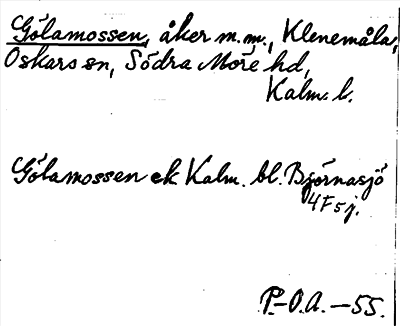 Gölamossen, åker m.m., Klenemåla,
Oskars sn, Södra Möre hd,
Kalm. l.
Gölamossen ek Kalm. bl. Björnasjö
4F5j.
P.-O.A. -55.